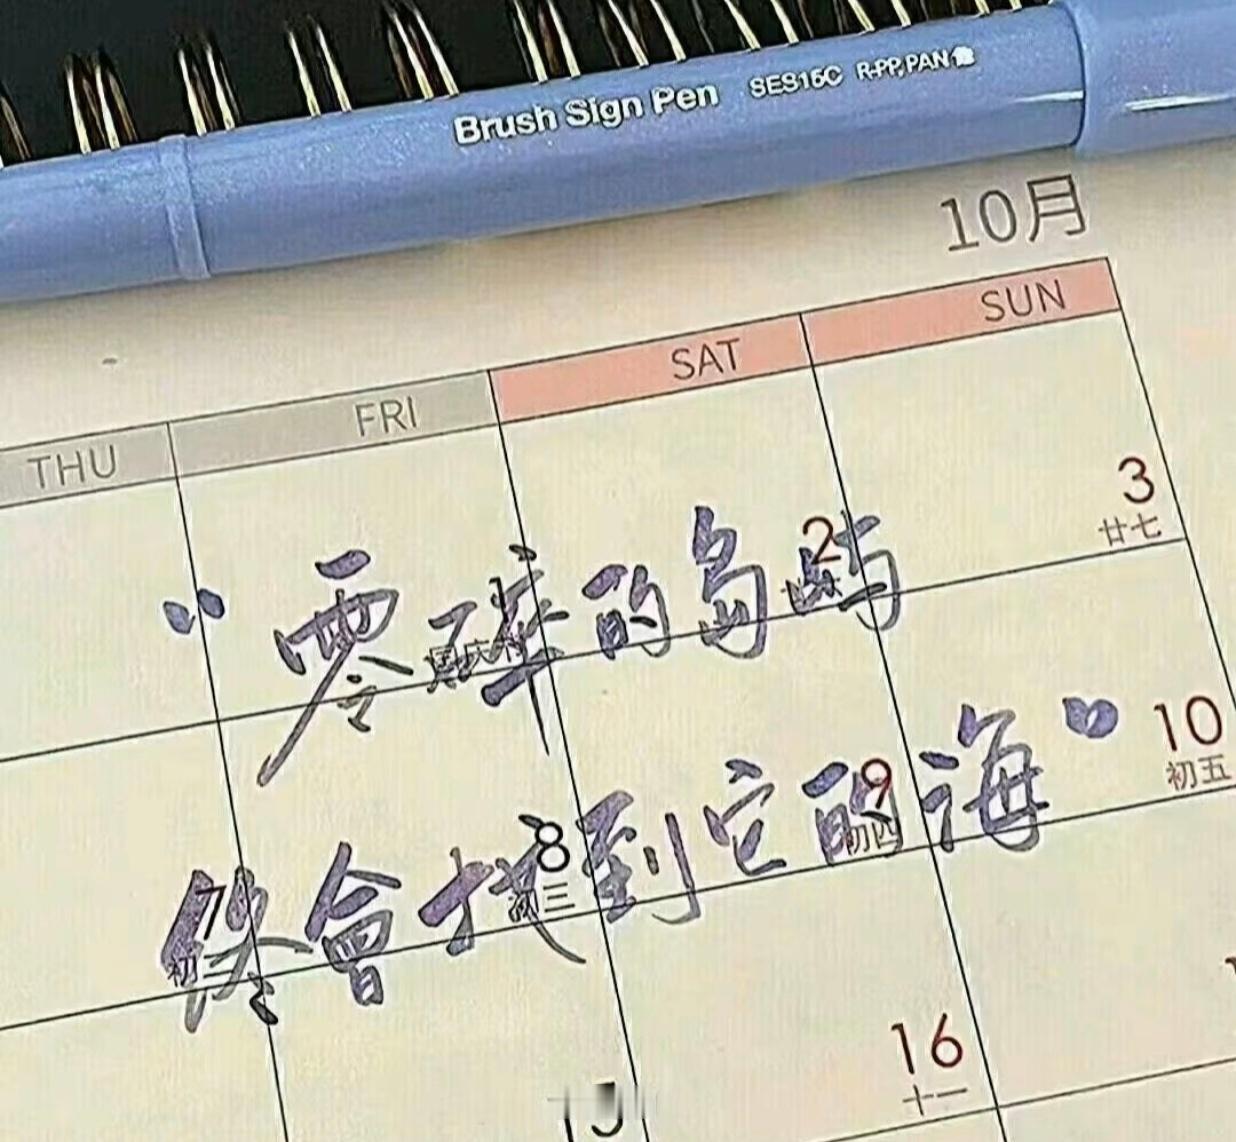 Brush Sign Pen SES15C R-PP, PAN
10月
THU FRI SAT SUN
2 3
国庆节 廿七
“零碎的島嶼
7 8 9 10
初二 初三 初四 初五
終會找到它的海”
16
十一